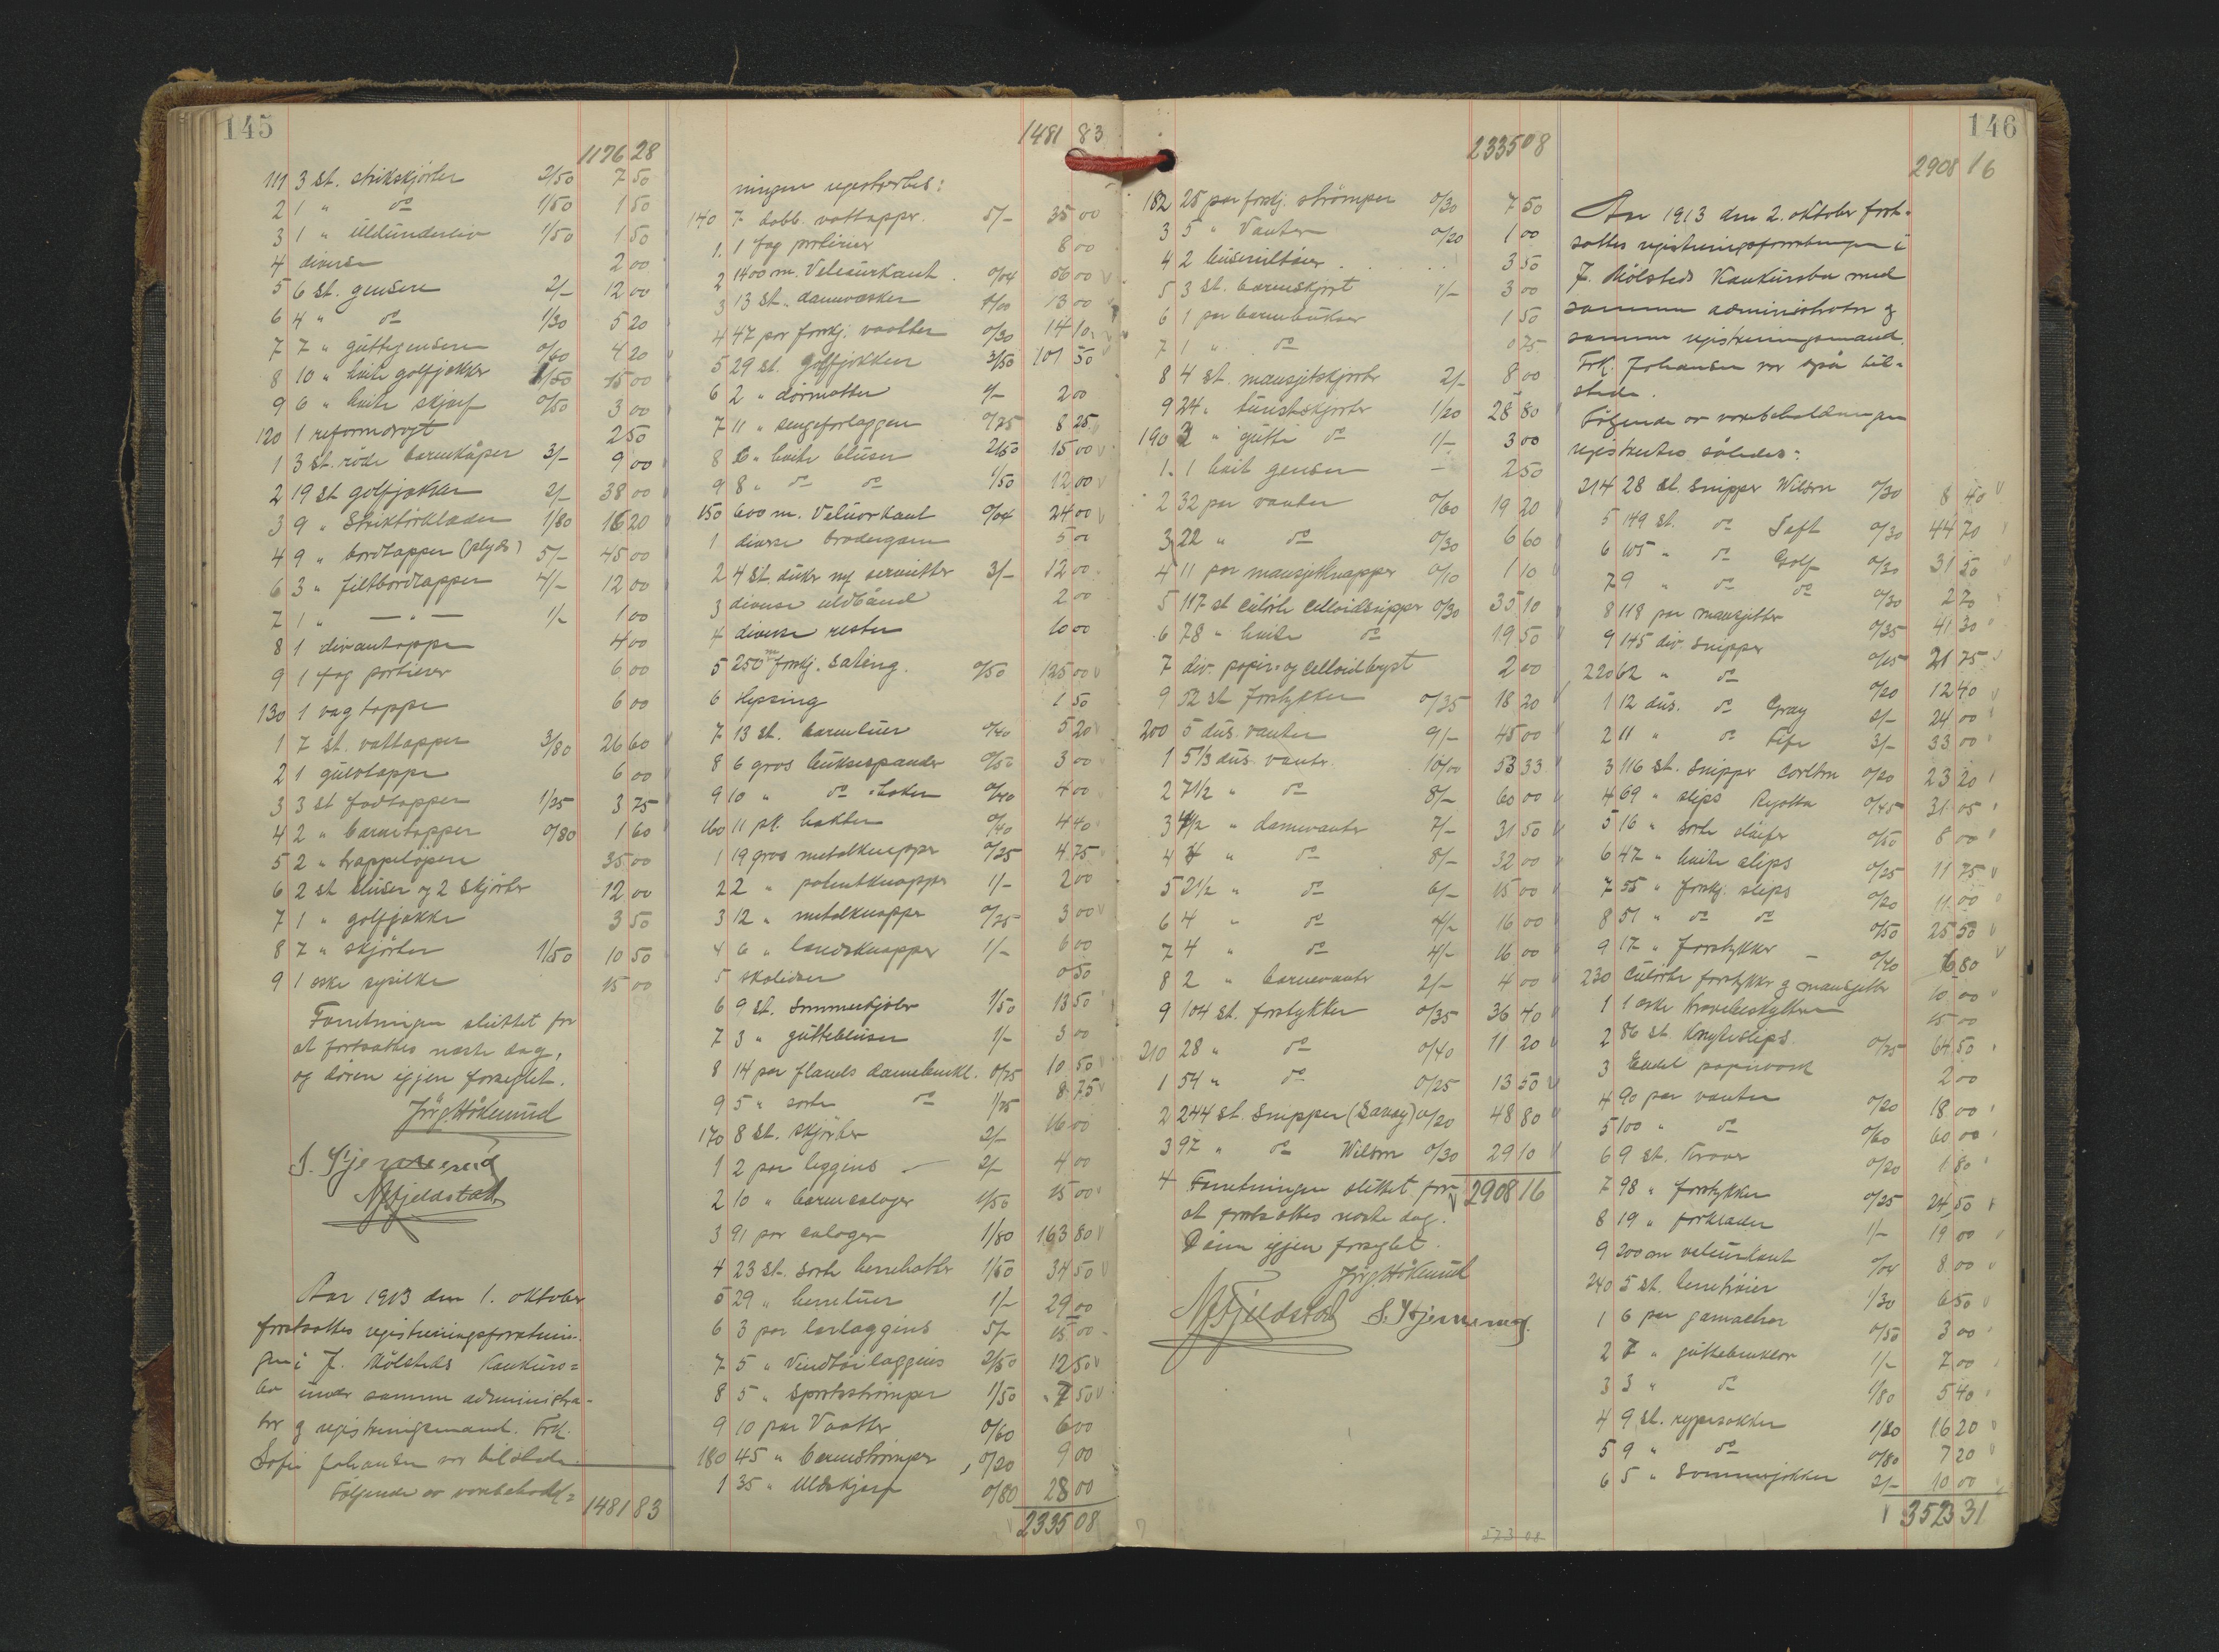 145
1176 28
111 3 st. strikskjörter 2/50 7 50
2 1 " do 1/50 1 50
3 1 " Uldunderliv 1/50 1 50
4 diverse 2 00
5 6 st. gensere 2/- 12 00
6 4 " do 1/30 5 20
7 7 " guttegensere 0/60 4 20
8 10 " hvite golfjakker 1/50 15 00
9 6 " hvite skjærf 0/50 3 00
120 1 reformdragt 2 50
1 3 st. röde barnekåper 3/- 9 00
2 19 st golfjakker 2/- 38 00
3 9 " Strikforklæder 1/80 16 20
4 9 " bordtepper (plyds) 5/- 45 00
6 3 " filtbordtepper 4/- 12 00
7 1 " — " — 1/- 1 00
8 1 divanteppe 4 00
9 1 fag portierer 6 00
130 1 vægteppe 6 00
1 7 st. vattepper 3/80 26 60
2 1 gulvteppe 6 00
3 3 st fodtepper 1/25 3 75
4 2 " barnetepper 0/80 1 60
5 2 " trappelöpere 35 00
6 2 st bluser og 2 skjörter 12 00
7 1 " golfjakke 3 50
8 7 " skjörter 1/50 10 50
9 1 æske sysilke 15 00
Forretningen sluttet for
at fortsættes næste dag,
og dören igjen forseglet.
Jörg. Hökerud
S. Stjernerud
N Fjeldstad
Aar 1913 den 1. oktober
fortsattes registreringsforretnin-
gen i J. Mölsteds konkurs=
bo under samme administra-
tor og registreringsmand. Frk.
Sofie Johansen var tilstede.
Følgende av varebehold= 1481 83
1481 83
ningen registrertes:
140 7 dobb. vattepper. 5/- 35 00
1. 1 fag portierer 8 00
2 1400 m. Velourkant 0/04 56 00
3 13 st. damevæsker 1/00 13 00
4 47 par forskj. vaatter 0/30 14 10
5 29 st. golfjakker 3/50 101 50
6 2 " dörmatter 1/- 2 00
7 11 " sengeforlæggere 0/75 8 25
8 6 " hvite bluser 2/50 15 00
9 8 " do do 1/50 12 00
150 600 m. Velourkant 0/04 24 00
1 diverse brodergarn 5 00
2 4 st. duker m/ servietter 3/- 12 00
3 diverse uldbånd 2 00
4 diverse rester 10 00
5 250 m forskj. sateng. 0/50 125 00
6 Hyssing 1 50
7 13 st. barneluer 0/40 5 20
8 6 gros buksespænder 0/50 3 00
9 10 " do " haker 0/40 4 00
160 11 pk. hækter 0/40 4 40
1 19 gros metalknapper 0/25 4 75
2 2 " patentknapper 1/- 2 00
3 12 " metalknapper 0/25 3 00
4 6 " landsknapper 1/- 6 00
5 skolisser 0 50
6 9 st. Sommerkjoler 1/50 13 50
7 3 " guttebluser 1/- 3 00
8 14 par flanels damebenkl. 0/75 10 50
9 5 " sorte do 1/75 8 75
170 8 st. skjörter 2/- 16 00
1 2 par leggins 2/- 4 00
2 10 " barnecaloger 1/50 15 00
3 91 par caloger 1/80 163 80
4 23 st. sorte herrehatter 1/50 34 50
5 29 " herreluer 1/- 29 00
6 3 par lærlæggins 5/- 15 00
7 5 " Vindtöilæggins 2/50 12 50
8 5 " Sportsströmper 1/50 7 50
9 10 par Vaatter 0/60 6 00
180 45 " barneströmper 0/20 9 00
1 35 " Uldskjærf 0/80 28 00
2335 08
146
2335 08
182 25 par forskj. strömper 0/30 7 50
3 5 " Vanter 0/20 1 00
4 2 3 50
5 3 st. barneskjört 1/- 3 00
6 1 par barnebukser 1 50
7 1 " do 0 75
8 4 st. mansjetskjorter 2/- 8 00
9 24 " turistskjorter 1/20 28 80
190 3 " gutte do 1/- 3 00
1. 1 hvit genser — 2 50
2 32 par vanter 0/60 19 20
3 22 " do 0/30 6 60
4 11 par mansjetknapper 0/10 1 10
5 117 st culörte celloidsnipper 0/30 35 10
6 78 " hvite do 19 50
7 div. papir= og celloidbryst 2 00
9 52 st forstykker 0/35 18 20
200 5 dus. vanter 9/- 45 00
1 5 1/3 dus. vanter 10/00 53 33
2 7 1/2 " do 8/- 60 00
3 4 1/2 " damevanter 7/- 31 50
4 4 " do 8/- 32 00
5 2 1/2 " do 6/- 15 00
6 4 " do 4/- 16 00
7 4 " do 4/- 16 00
8 2 " barnevanter 2/- 4 00
9 104 st. forstykker 0/35 36 40
210 28 " do 0/40 11 20
1 54 " do 0/25 13 50
2 244 st Snipper (Savay) 0/20 48 80
3 97 " do Wilson 0/30 29 10
4 Forretningen sluttet for 2908 16
at fortsættes næste dag.
Dören igjen forseglet.
Jörg. Hökerud
N Fjeldstad S. Stjernerud.
573 08
2908 16
Aar 1913 den 2. oktober fort-
sattes registreringsforretningen i
J. Mölsteds Konkursbo med
samme administrator og
samme registreringsmand.
Frk. Johansen var også til-
stede.
Følgende av varebeholdningen
registrertes således:
214 28 st. Snipper Wilson 0/30 8 40
5 149 st. do Taft 0/30 44 70
6 105 " do Golf 0/30 31 50
7 9 " do do 0/30 2 70
8 118 par mansjetter 0/35 41 30
9 145 div. snipper 0/15 21 75
220 62 " do 0/20 12 40
1 12 dus. do Gray 2/- 24 00
2 11 " do Fife 3/- 33 00
3 116 st. Snipper Carlton 0/20 23 20
4 69 " slips Regatta 0/45 31 05
5 16 " sorte slöifer 0/50 8 00
6 47 " hvite slips 0/25 11 75
7 55 " forskj. slips 0/20 11 00
8 51 " do do 0/50 25 50
9 17 " forstykker 0/40 6 80
230 Culörte forstykker og mansjetter 10 00
1 1 æske kravebeskyttere 15 00
2 86 st. Knyteslips 0/75 64 50
3 Endel papirvask 2 00
4 90 par vanter 0/20 18 00
5 100 " do 0/60 60 00
6 9 st. Kraver 0/20 1 80
7 98 " forstykker 0/25 24 50
8 19 " forklæder 1/- 19 00
9 200 m velourkant 0/04 8 00
240 5 st. herretröier 1/30 6 50
1 6 par gamacher 0/50 3 00
2 7 " guttebenklær 1/- 7 00
3 3 " do 1/80 5 40
4 9 st. rypesekker 1/80 16 20
5 9 " do 0/80 7 20
6 5 " Sommerjakker 2/- 10 00
3523 31